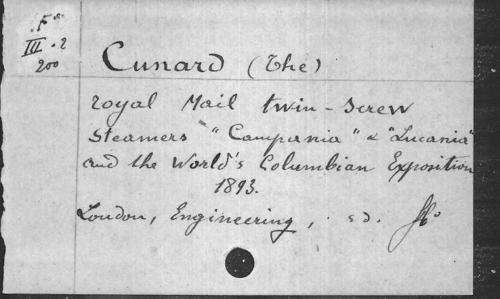 F°
III. 2
200
Cunard (The)
royal Mail twin-screw
steamers "Campania" & "Lucania"
and the World's Columbian Exposition
1893.
London, Engineering, s.d. f°